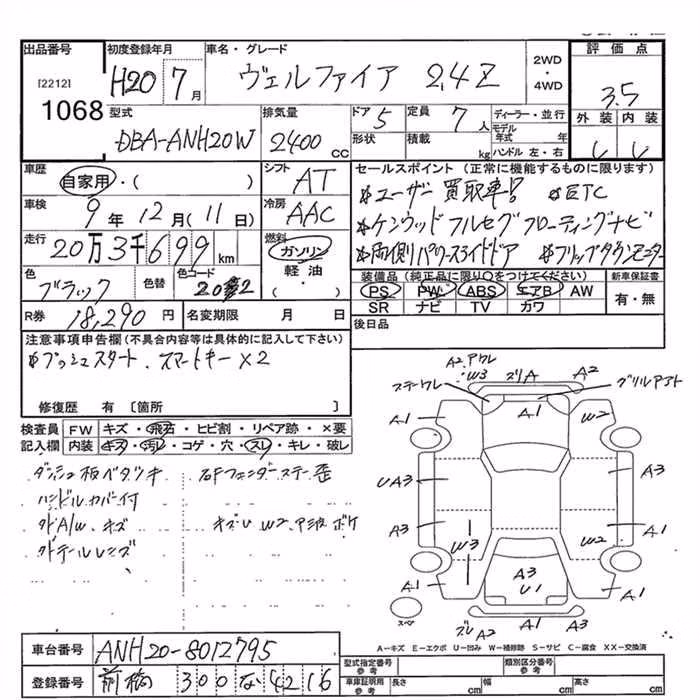 出品番号 初度登録年月 車名・グレード 評価点
[2212] H20 7月 ヴェルファイア 2.4Z 2WD・4WD 3.5
1068 型式 排気量 ドア 5 定員 7人 ディーラー・並行 外装 内装
DBA-ANH20W 2400cc 形状 積載 kg モデル年式 年 ハンドル 左・右
車歴 シフト セールスポイント (正常に機能するものに限ります)
自家用・( ) AT *ユーザー買取車!! *ETC
車検 9年 12月(11日) 冷房 AAC *ケンウッドフルセグフローティングナビ
走行 20万3千699km 燃料 ガソリン *両側パワースライドドア *フリップダウンモニター
色 色替 色コード 軽油・ 装備品 (純正品に限り○をつけてください) 新車保証書
ブラック 202 PS PW ABS エアB AW 有・無
SR ナビ TV カワ
R券 18,290円 名変期限 月 日 後日品
注意事項申告欄(不具合内容等は具体的に記入して下さい)
*プッシュスタート、スマートキー×2
修復歴 有 [箇所 ]
検査員 FW キズ・飛石・ヒビ割・リペア跡・×要
記入欄 内装 キズ・汚レ・コゲ・穴・スレ・キレ・破レ
ダッシュ板ベタツキ 右Fフェンダーステー歪
ハンドルカバー付
外A/W キズ キズU W2
外テールレンズ
A2 アワレ
W3 スリA A2
ステーワレ グリルアウト
A1 A1 W2
UA3 A3
A3 W3 W2 A1
A3
A1 U1 A1
スペア
A2 A3
A-キズ E-エクボ U-凹み W-補修跡 S-サビ C-腐食 XX-交換済
車台番号 ANH20-8012795
型式指定番号 参考 類別区分番号 参考
登録番号 前橋 300 な 4216
車庫証明用 参考 長さ cm 幅 cm 高さ cm